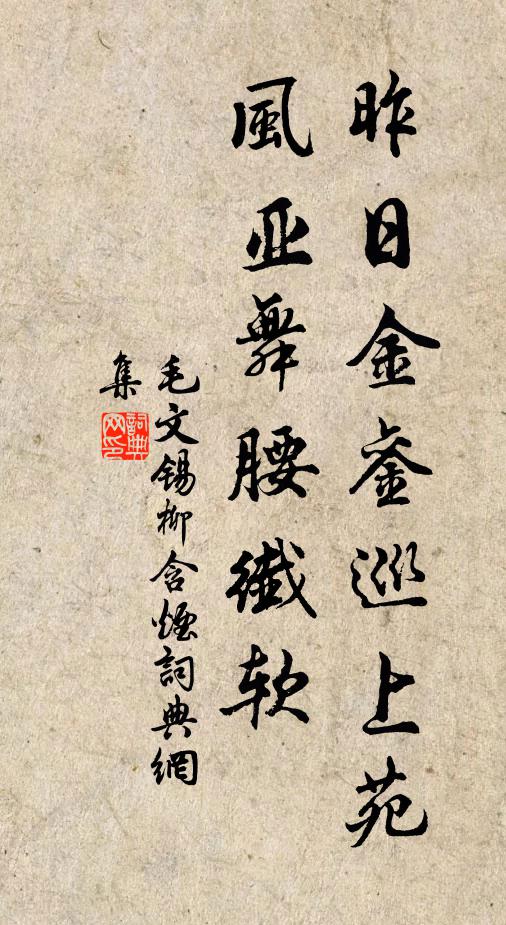 昨日金銮巡上苑
風亚舞腰纖软
毛文锡柳含煙詞典網
集
詞典
网印